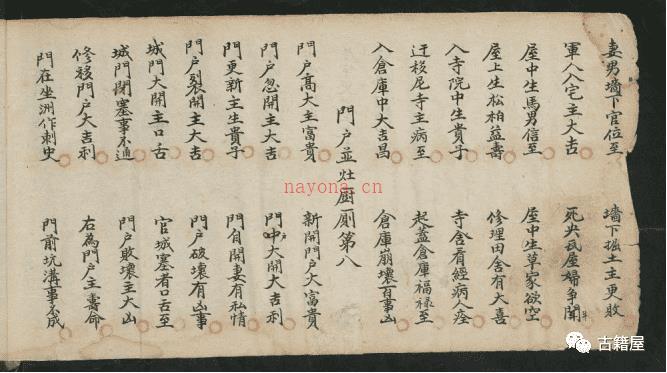 妻男墻下官位至 墻下掘土主更敗
軍人入宅主大吉 死夬瓦屋婦爭鬪
屋中生馬男信至 屋中生草家欲空
屋上生松柏益壽 修理田舍有大喜
入寺院中生貴子 寺舍看經病人痊
迁移尼寺主病至 起蓋倉庫福祿至
入倉庫中大吉昌 倉庫崩壞百事凶
門户並灶厨厠第八
門户髙大主富貴 新開門户大富貴
門户忽開主大吉 門中大開大吉利
門更新主生貴子 門自開妻有私情
門户裂開主大吉 門户破壞有凶事
城門大開主口舌 官城塞者口舌至
城門閇塞事不通 門户敗壞主大凶
修移門户大吉利 右為門户主壽命
門在坐洲作刺史 門前坑溝事不成
nayona.cn
古籍屋